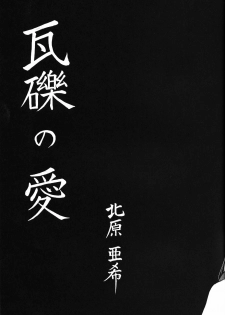 瓦礫の愛
北原亜希